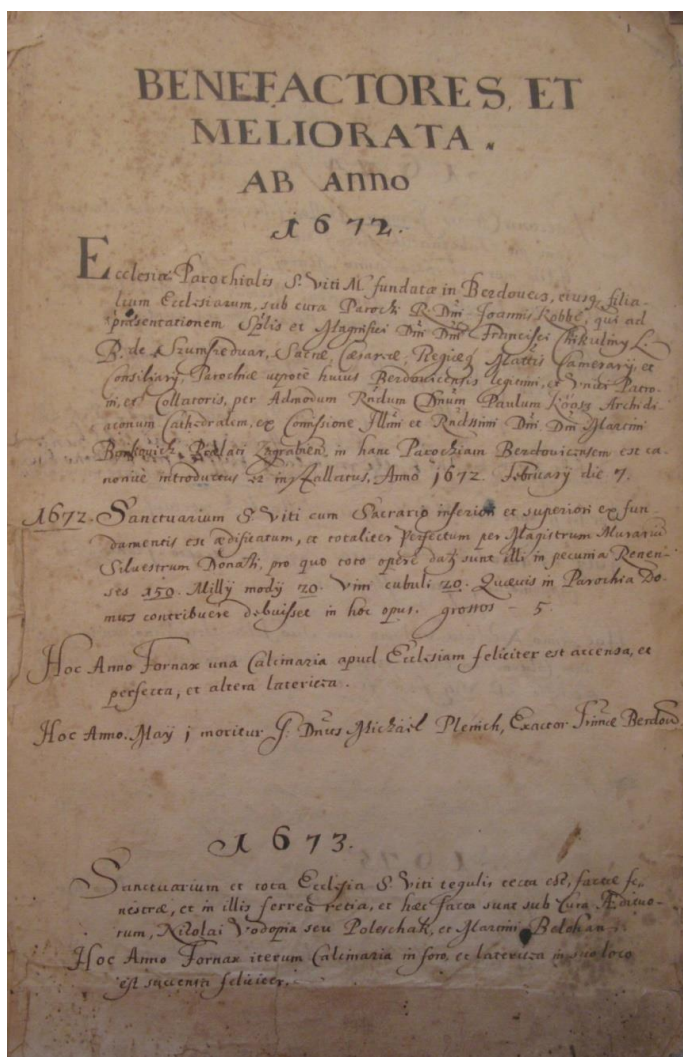 BENEFACTORES, ET
MELIORATA.
AB Anno
1672.
Ecclesiæ Parochialis S. Viti M. fundatæ in Berdovecz, eiusq; filia-
lium Ecclesiarum, sub cura Parochi R. Dni Joannis Kobbe, qui ad
præsentationem Splis et Magnifici Dni Dni Francisci Chikuliny L.
B. de Szumszeduar, Sacræ Cæsareæ, Regiæq; Mattis Camerarij, et
Consiliarij, Parochiæ utpote huius Berdovicensis legitimi, et Unici Patro-
ni, et Collatoris, per Admodum Rndum Dnum Paulum Archidi-
aconum Cathedralem, ex Comissione Illmi et Rndssimi Dni Dni Martini
Borkovich, Zagrabien, in hanc Parochiam Berdovicensem est ca-
nonicè introductus et installatus, Anno 1672. February die 7.
1672. Sanctuarium S. Viti cum Sacrario inferiori et superiori ex fun-
damentis est ædificatum, et totaliter perfectum per Magistrum Murariu
Silvestrum Donati, pro quo toto opere dati sunt illi in pecunia Renen-
ses 150. Millij modij 20. Vini cubuli 20. Quævis in Parochia Do-
mus contribuere debuisset in hoc opus. grossos - 5
Hoc Anno Fornax una Calcinaria apud Ecclesiam feliciter est accensa, et
perfecta, et altera latericea.
Hoc Anno. Maij 1 moritur G. Dnus Michael Plemich, Exactor Berdov.
1673.
Sanctuarium et tota Ecclesia S. Viti tegulis tecta est, factæ fe-
nestræ, et in illis ferrea retia, et hæc facta sunt sub cura ÆditUo-
rum, Nicolai Vodopia seu Poleschak, et Martini Belohan.
Hoc Anno Fornax iterum Calcinaria in foro, et latericza in suo loco
est succensa feliciter.